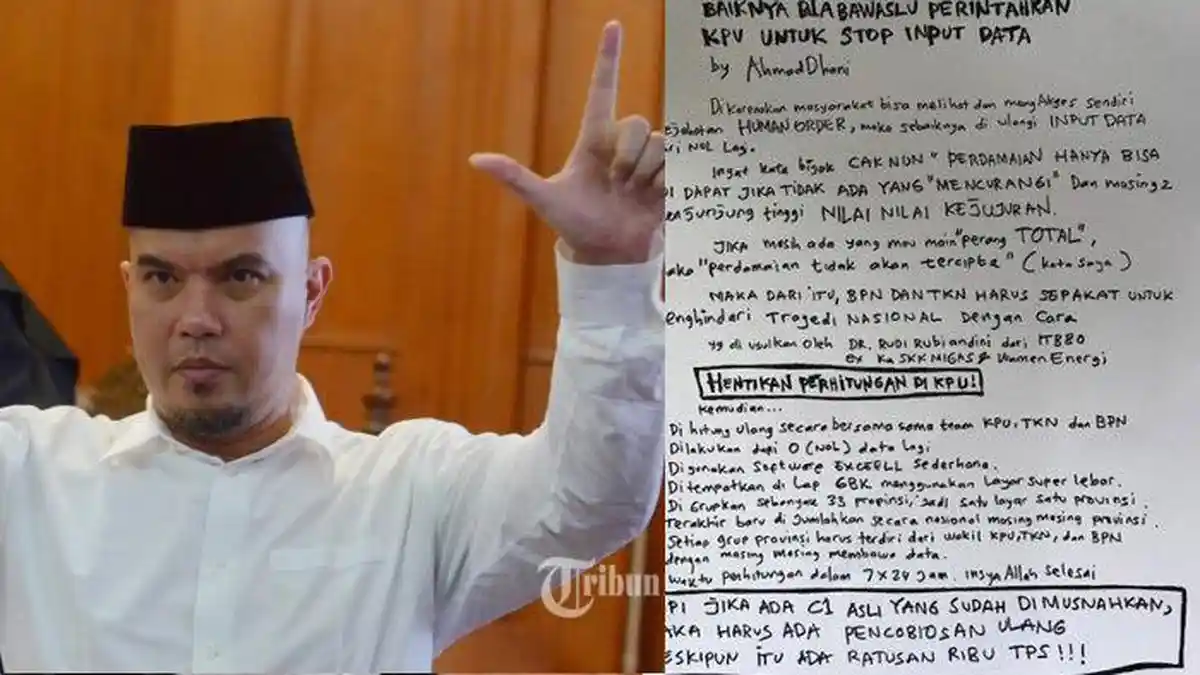 BAIKNYA BILA BAWASLU PERINTAHKAN
KPU UNTUK STOP INPUT DATA
by AhmadDhani
Dikarenakan masyarakat bisa melihat dan mengAkses sendiri
ejahatan HUMAN ORDER, maka sebaiknya di ulangi INPUT DATA
ari NOL Lagi.
Ingat kata bijak CAK NUN "PERDAMAIAN HANYA BISA
DI DAPAT JIKA TIDAK ADA YANG "MENCURANGI" Dan masing2
enjunjung tinggi NILAI NILAI KEJUJURAN.
JIKA masih ada yang mau main "perang TOTAL",
aka "perdamaian tidak akan tercipta" (kata saya)
MAKA DARI ITU, BPN DAN TKN HARUS SEPAKAT UNTUK
enghindari Tragedi NASIONAL Dengan Cara
yg di usulkan oleh DR. RUDI Rubiandini dari ITB80
ex Ka SKK MIGAS & Wamen Energi
HENTIKAN PERHITUNGAN DI KPU!
Kemudian...
Di hitung ulang secara bersama sama team KPU, TKN dan BPN
Dilakukan dari 0 (NOL) data lagi
Digunakan Software EXCELL Sederhana.
Ditempatkan di Lap GBK menggunakan Layar super lebar.
Di Grupkan sebanyak 33 propinsi, jadi satu layar satu provinsi.
Terakhir baru di jumlahkan secara nasional masing masing provinsi.
Setiap grup provinsi harus terdiri dari wakil KPU, TKN, dan BPN
dengan masing masing membawa data.
Waktu perhitungan dalam 7x24 jam. insya Allah selesai
PI JIKA ADA C1 ASLI YANG SUDAH DIMUSNAHKAN,
AKA HARUS ADA PENCOBLOSAN ULANG
ESKIPUN ITU ADA RATUSAN RIBU TPS!!!
Tribun